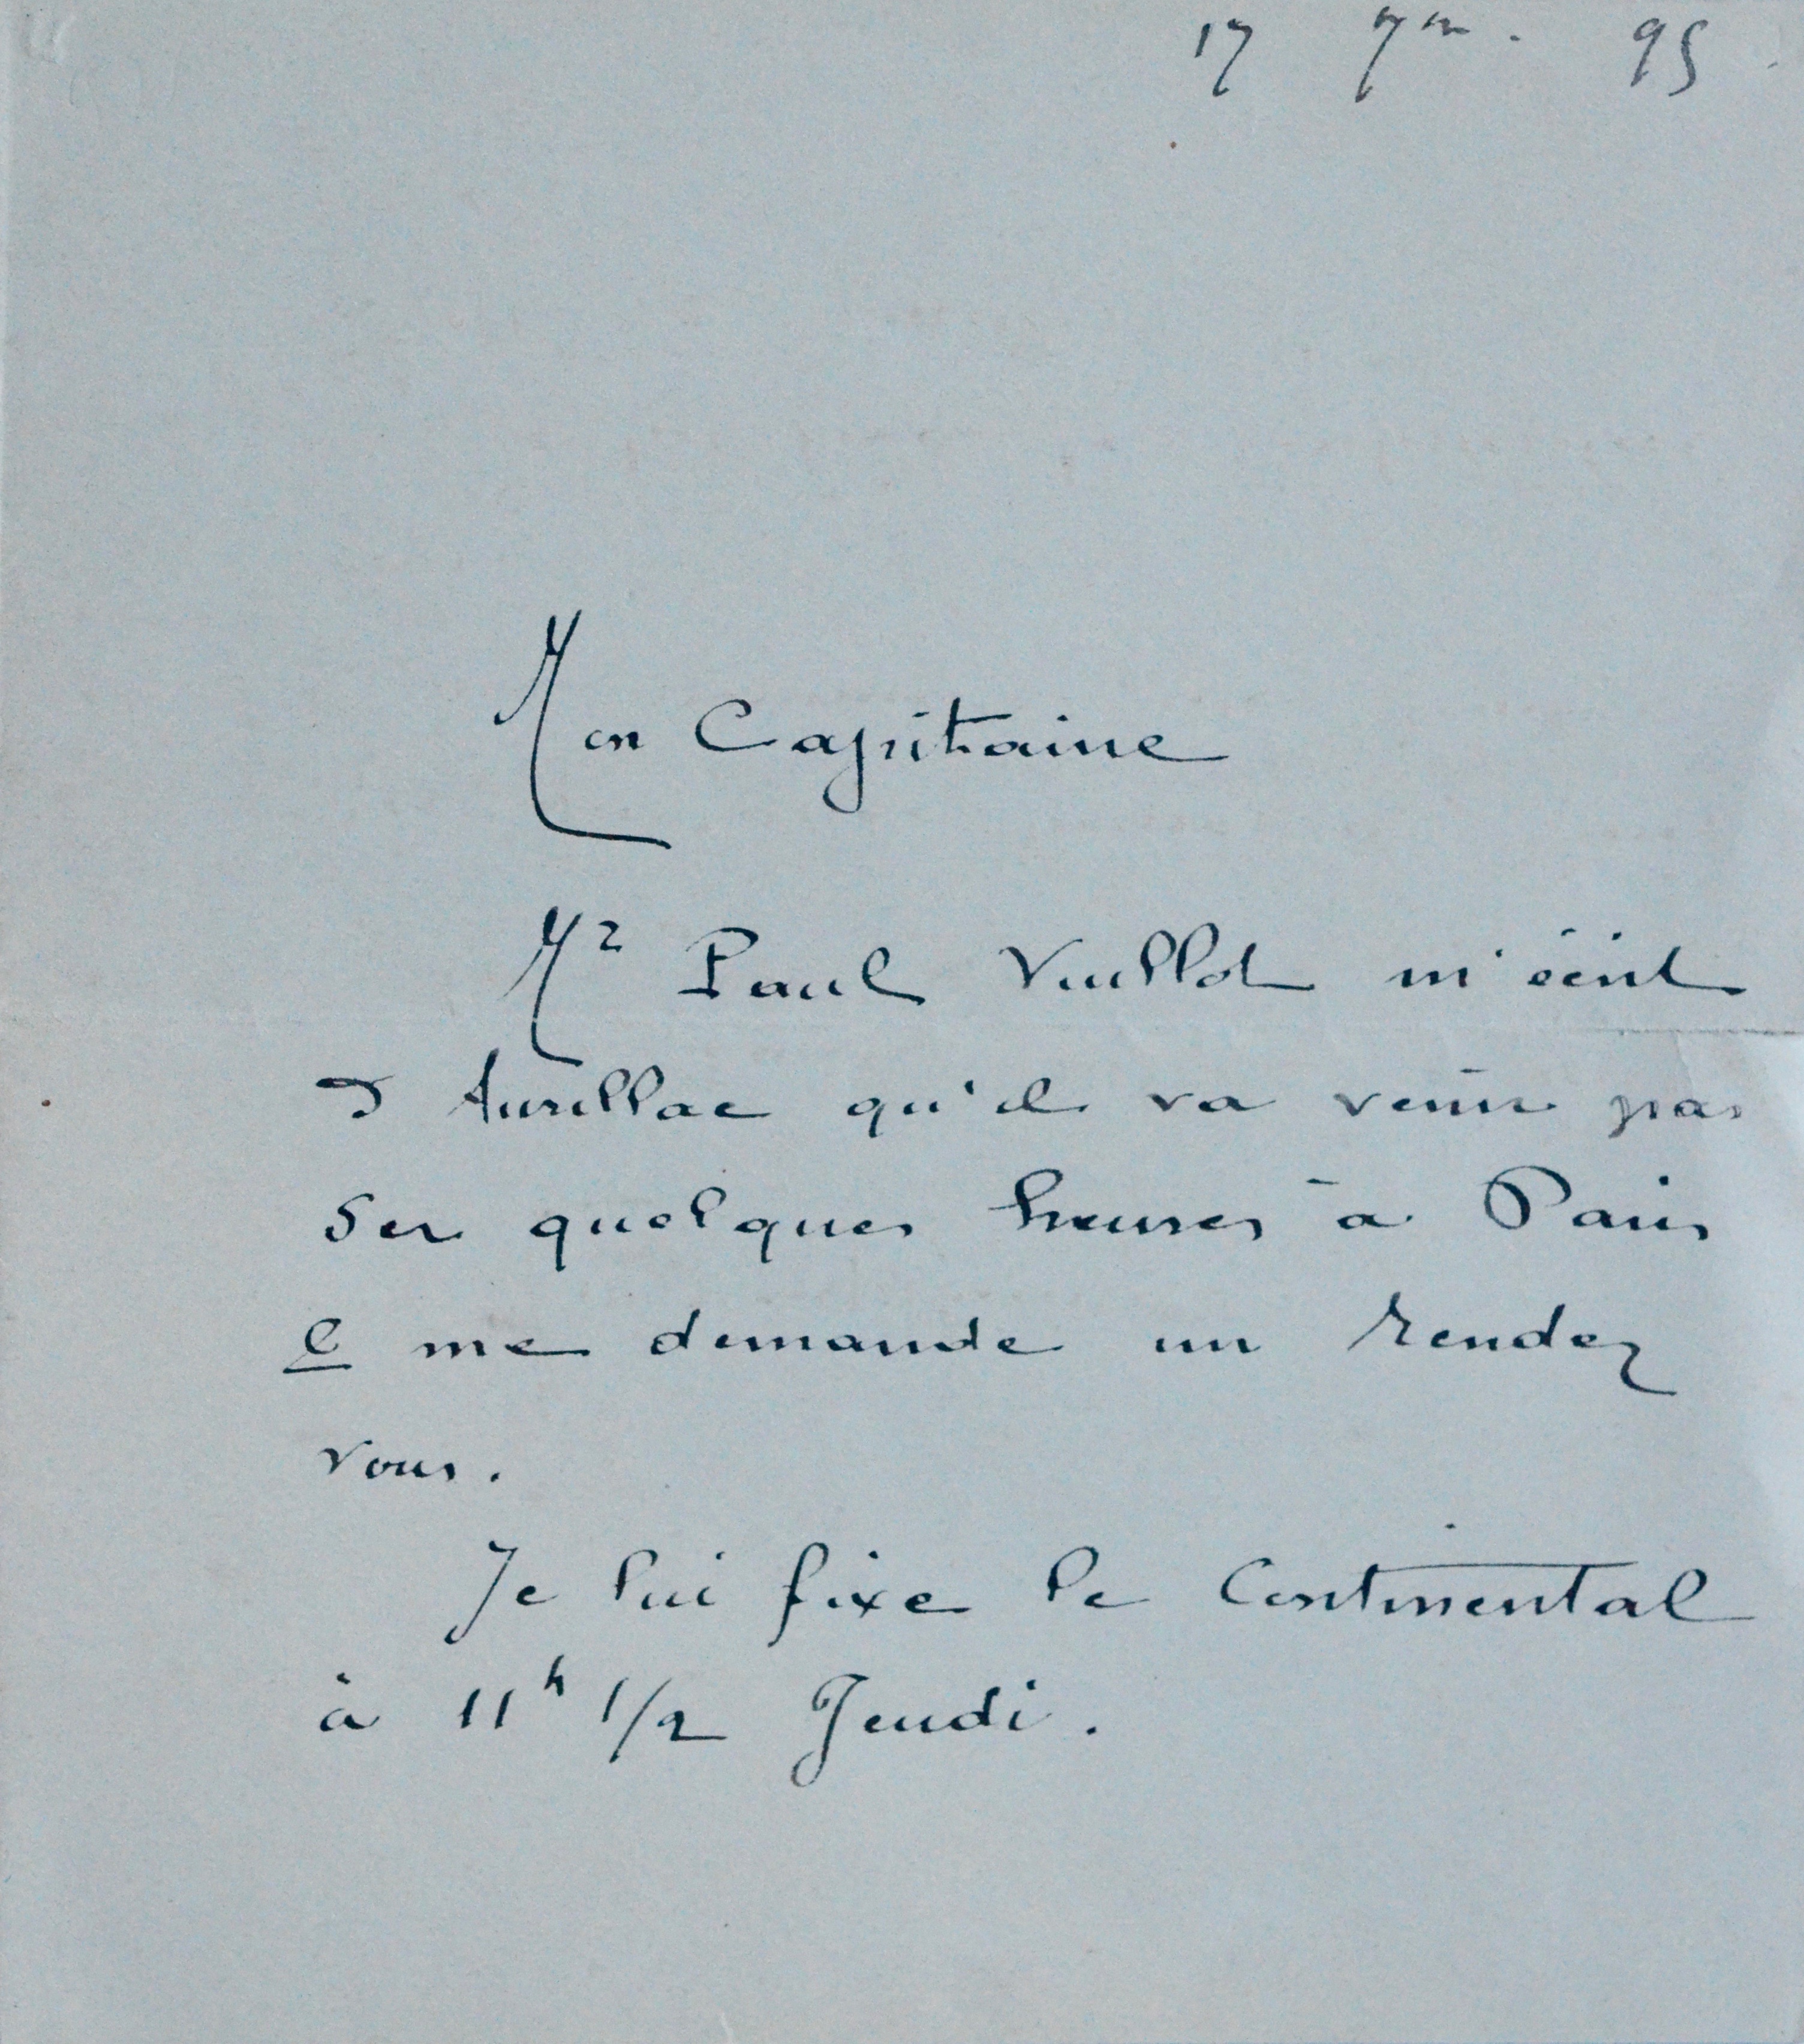 17 7bre. 95.
Mon Capitaine
Mr Paul Vuillot m'écrit
d'Aurillac qu'il va venir pas
ser quelques heures à Paris
& me demande un rendez
vous.
Je lui fixe le Continental
à 11h 1/2 Jeudi.